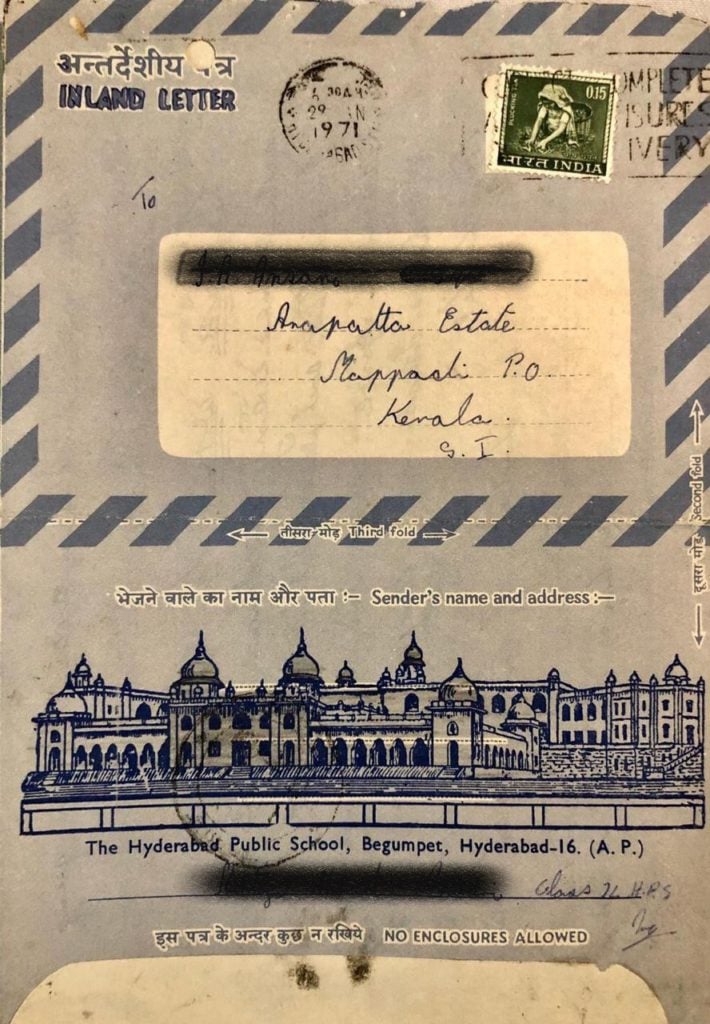 अन्तर्देशीय पत्र
INLAND LETTER
29
1971
OMPLETE
ISURES
IVERY
PLUCKING TEA
0.15
भारत INDIA
To
Arapatta Estate
Mappadi P.O.
Kerala.
S. I.
तीसरा मोड़ Third fold
दूसरा मोड़ Second fold
भेजने वाले का नाम और पता :- Sender's name and address:-
The Hyderabad Public School, Begumpet, Hyderabad-16. (A. P.)
Class H.P.S
इस पत्र के अन्दर कुछ न रखिये NO ENCLOSURES ALLOWED